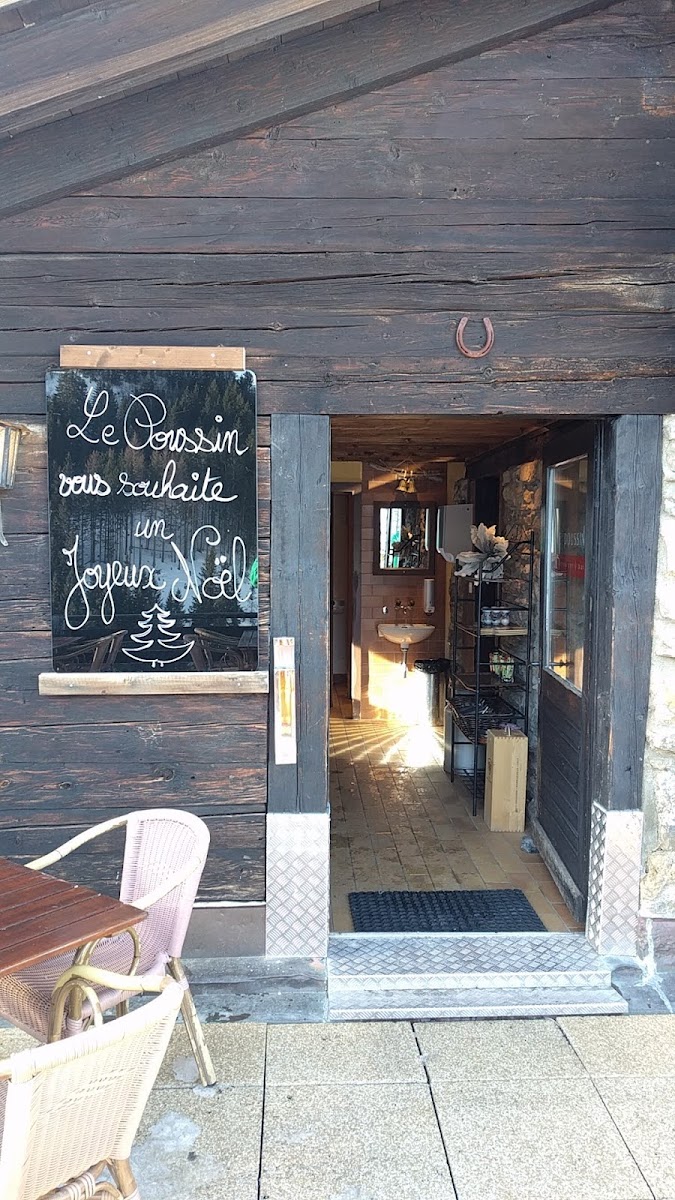 Le Poussin
vous souhaite
un
Joyeux Noël